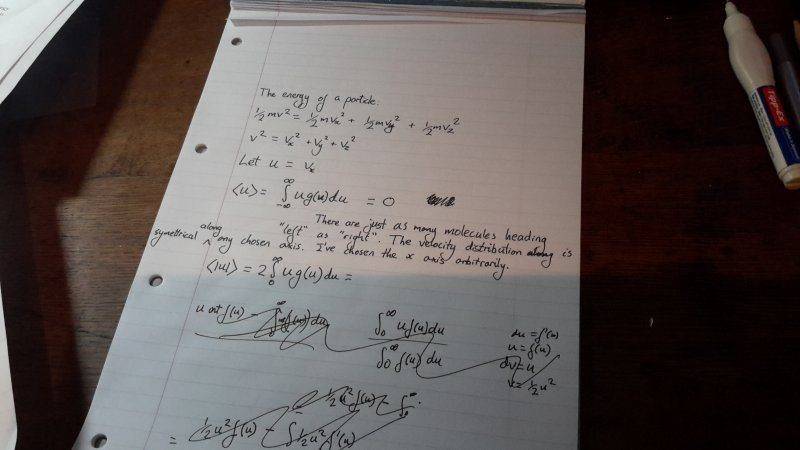 The energy of a particle.
½mv² = ½mvₓ² + ½mv_y² + ½mv_z²
v² = vₓ² + v_y² + v_z²
Let u = vₓ
⟨u⟩ = ∫_{-∞}^{∞} u g(u) du = 0
There are just as many molecules heading
"left" as "right". The velocity distribution is
symettrical along any chosen axis. I've chosen the x axis arbitrarily.
⟨|u|⟩ = 2∫_0^∞ u g(u) du =
∫_0^∞ u f(u) du
∫_0^∞ f(u) du
du = f'(u)
u = f(u)
dv = u
v = ½u²
½u² f(u) -
= ½u² f(u) - ∫ ½u² f'(u)
Tipp-Ex